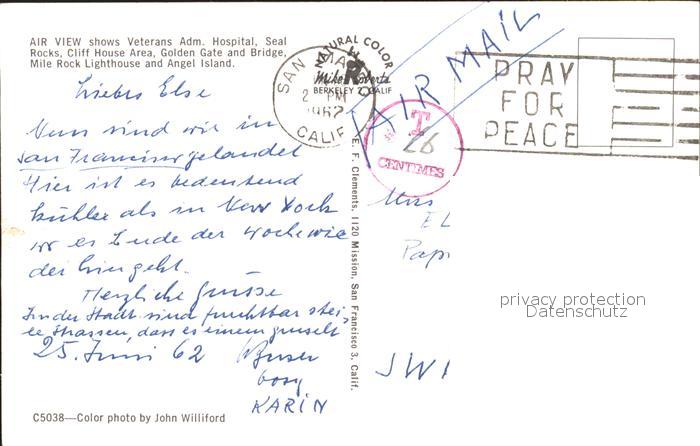 AIR VIEW shows Veterans Adm. Hospital, Seal
Rocks, Cliff House Area, Golden Gate and Bridge,
Mile Rock Lighthouse and Angel Island.
Liebes Else
Nun sind wir in
San Francisco gelandet
Hier ist es bedeutend
kühler als in New York
wo es Ende der Woche wie
der hingeht.
Herzliche Grüsse
In der Stadt sind furchtbar stei-
le Strassen, dass es einem gruselt
25. Juni 62
KARIN
C5038—Color photo by John Williford
NATURAL COLOR
Mike Roberts
BERKELEY 2, CALIF
SAN
2 PM
1962
CALIF
E. F. Clements, 1120 Mission, San Francisco 3, Calif.
AIR MAIL
PRAY
FOR
PEACE
T
CENTIMES
Miss
EL
Papi
privacy protection
Datenschutz
SWI